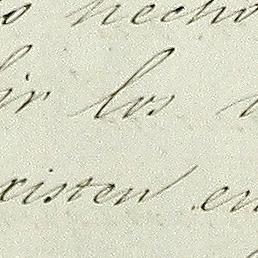 o hecho
ir los
existen en